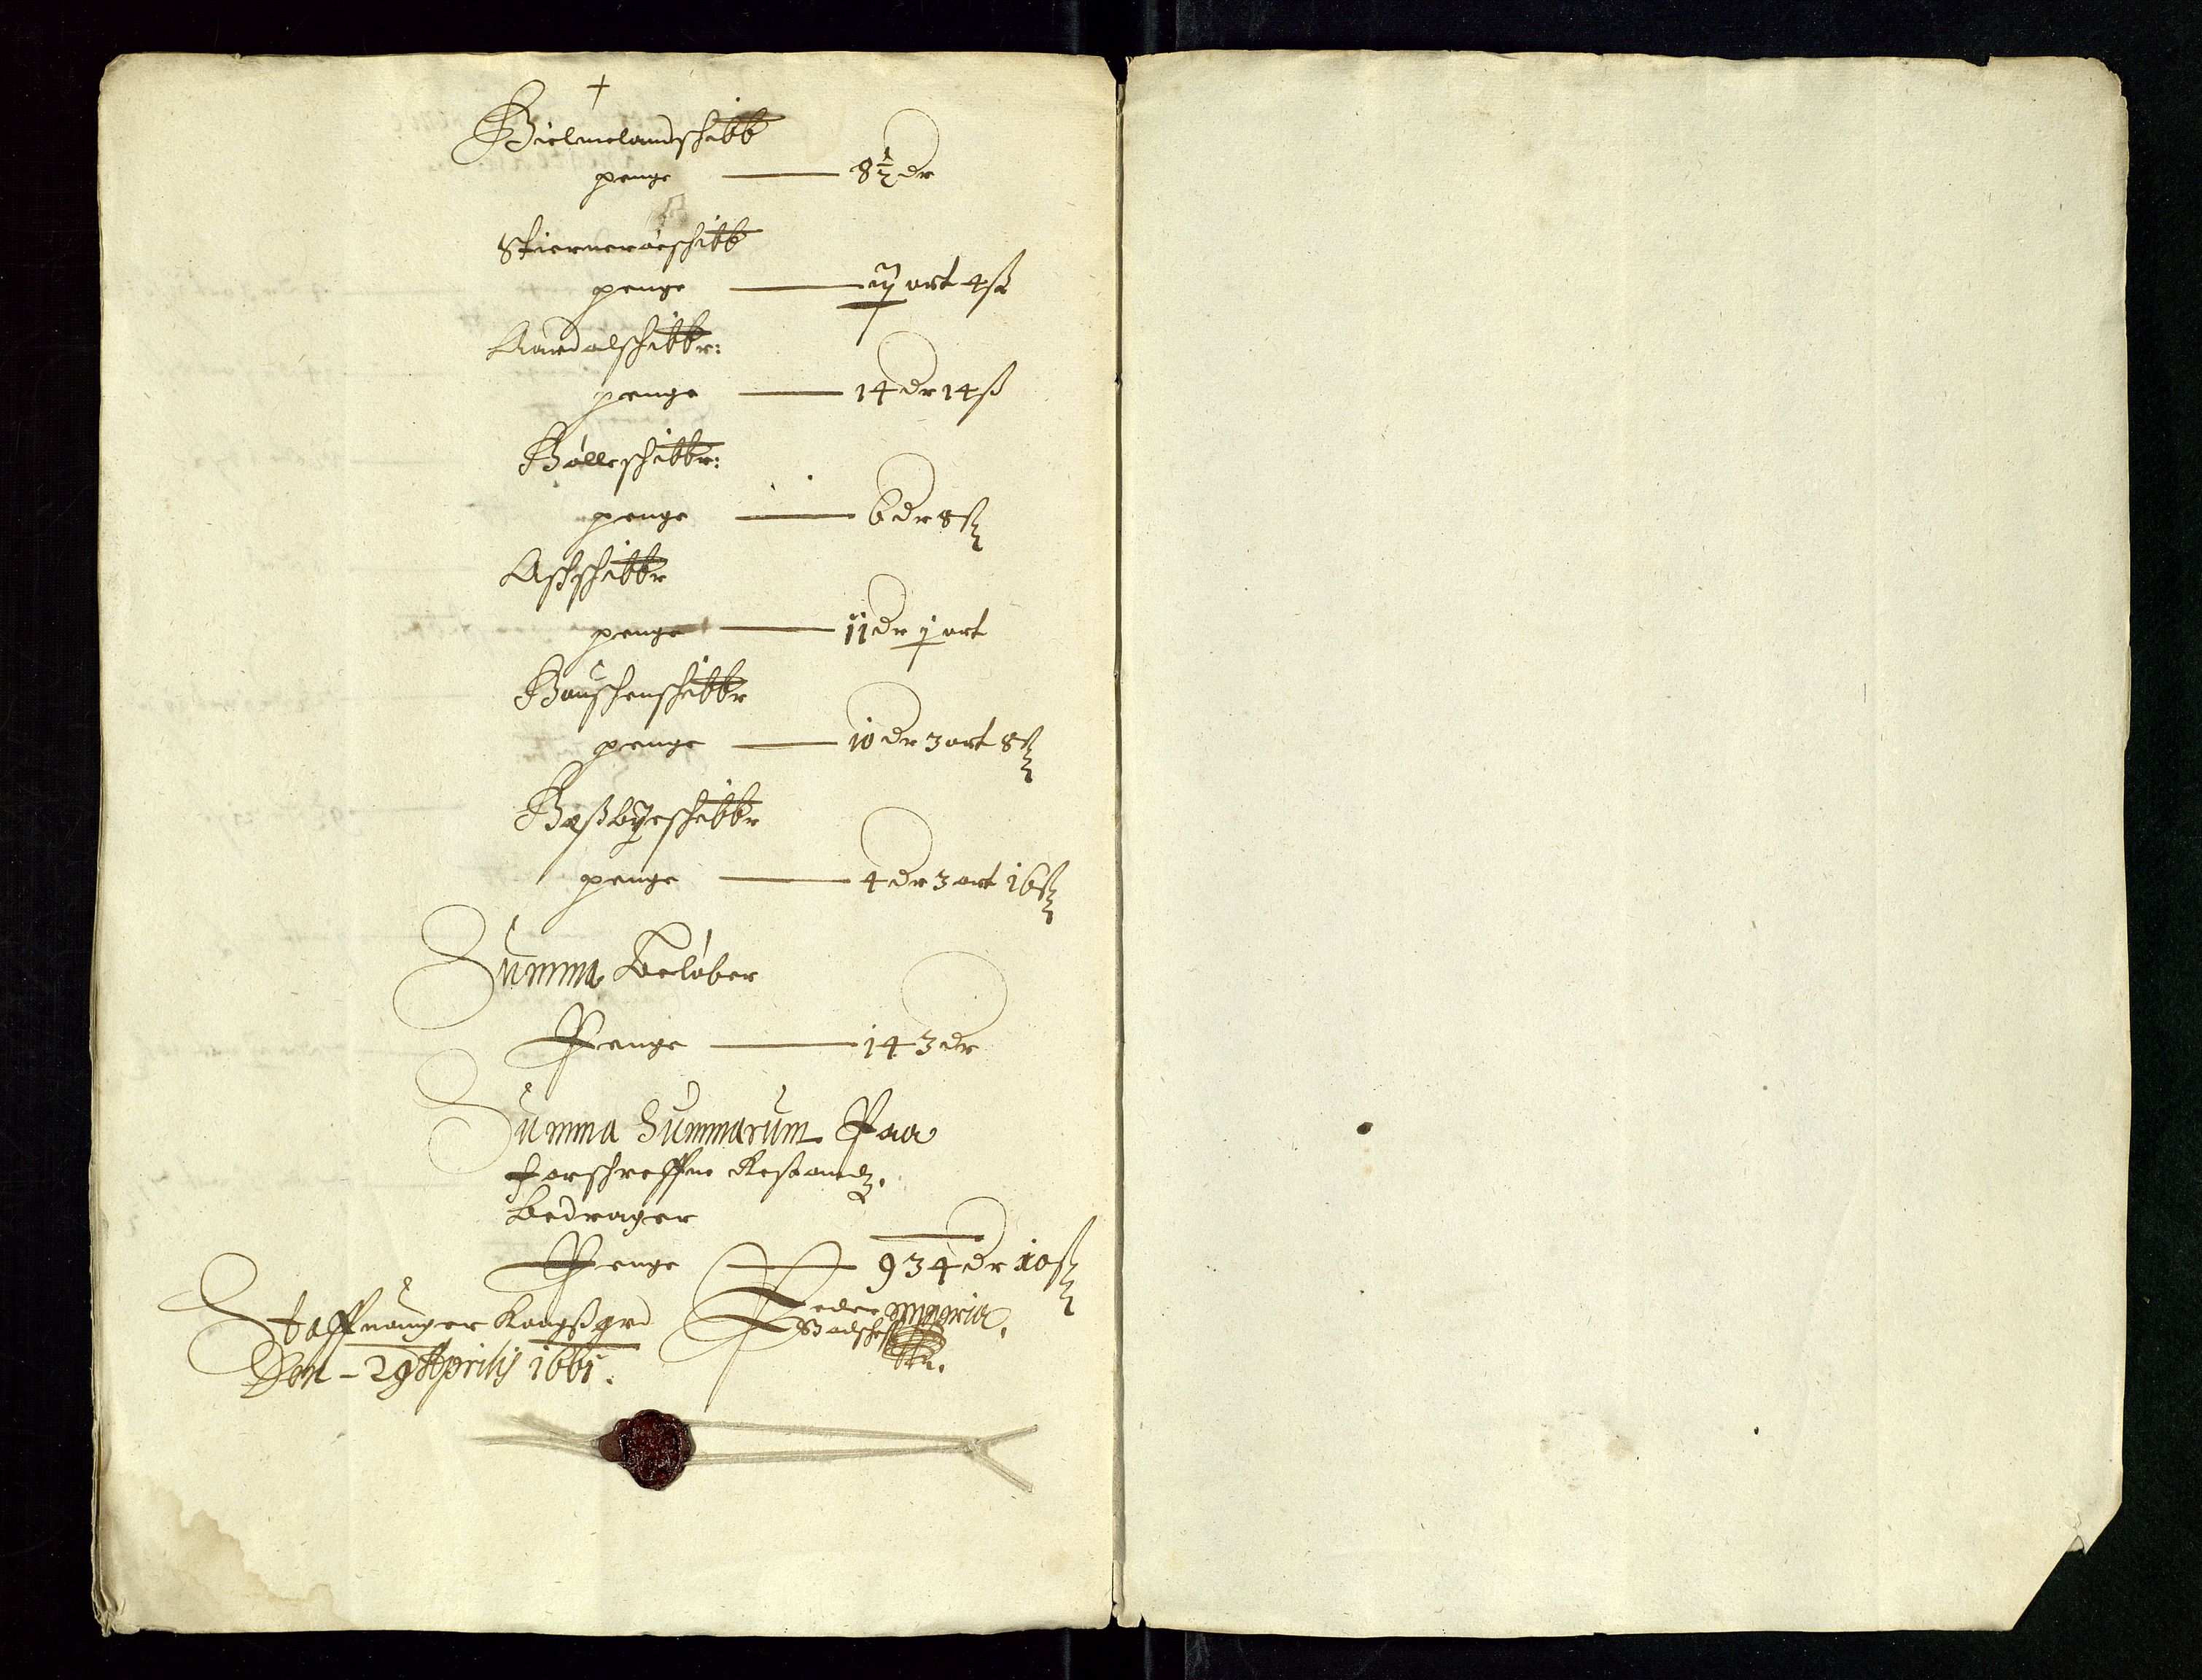 +
Hielmelandschibb
penge — 8½ dr
Stierneröeschibb
penge — ij ort 4 ß
Aardalschibbr:
penge — 14 dr 14 ß
Hölleschibbr:
penge — 6 dr 8 ß
Aschschibbr
penge — 11 dr j ort
Hauschenschibbr
penge — 10 dr 3 ort 8 ß
Heßbyeschibbr
penge — 4 dr 3 ort 16 ß
Summa Belöber
Penge — 143 dr
Summa Summarum Paa
forschreffne Restandz.
Bedrager
Penge — 934 dr 10 ß
Staffuanger Kongßgrd
Den - 29 Aprilis 1661.
Peder
mppria.